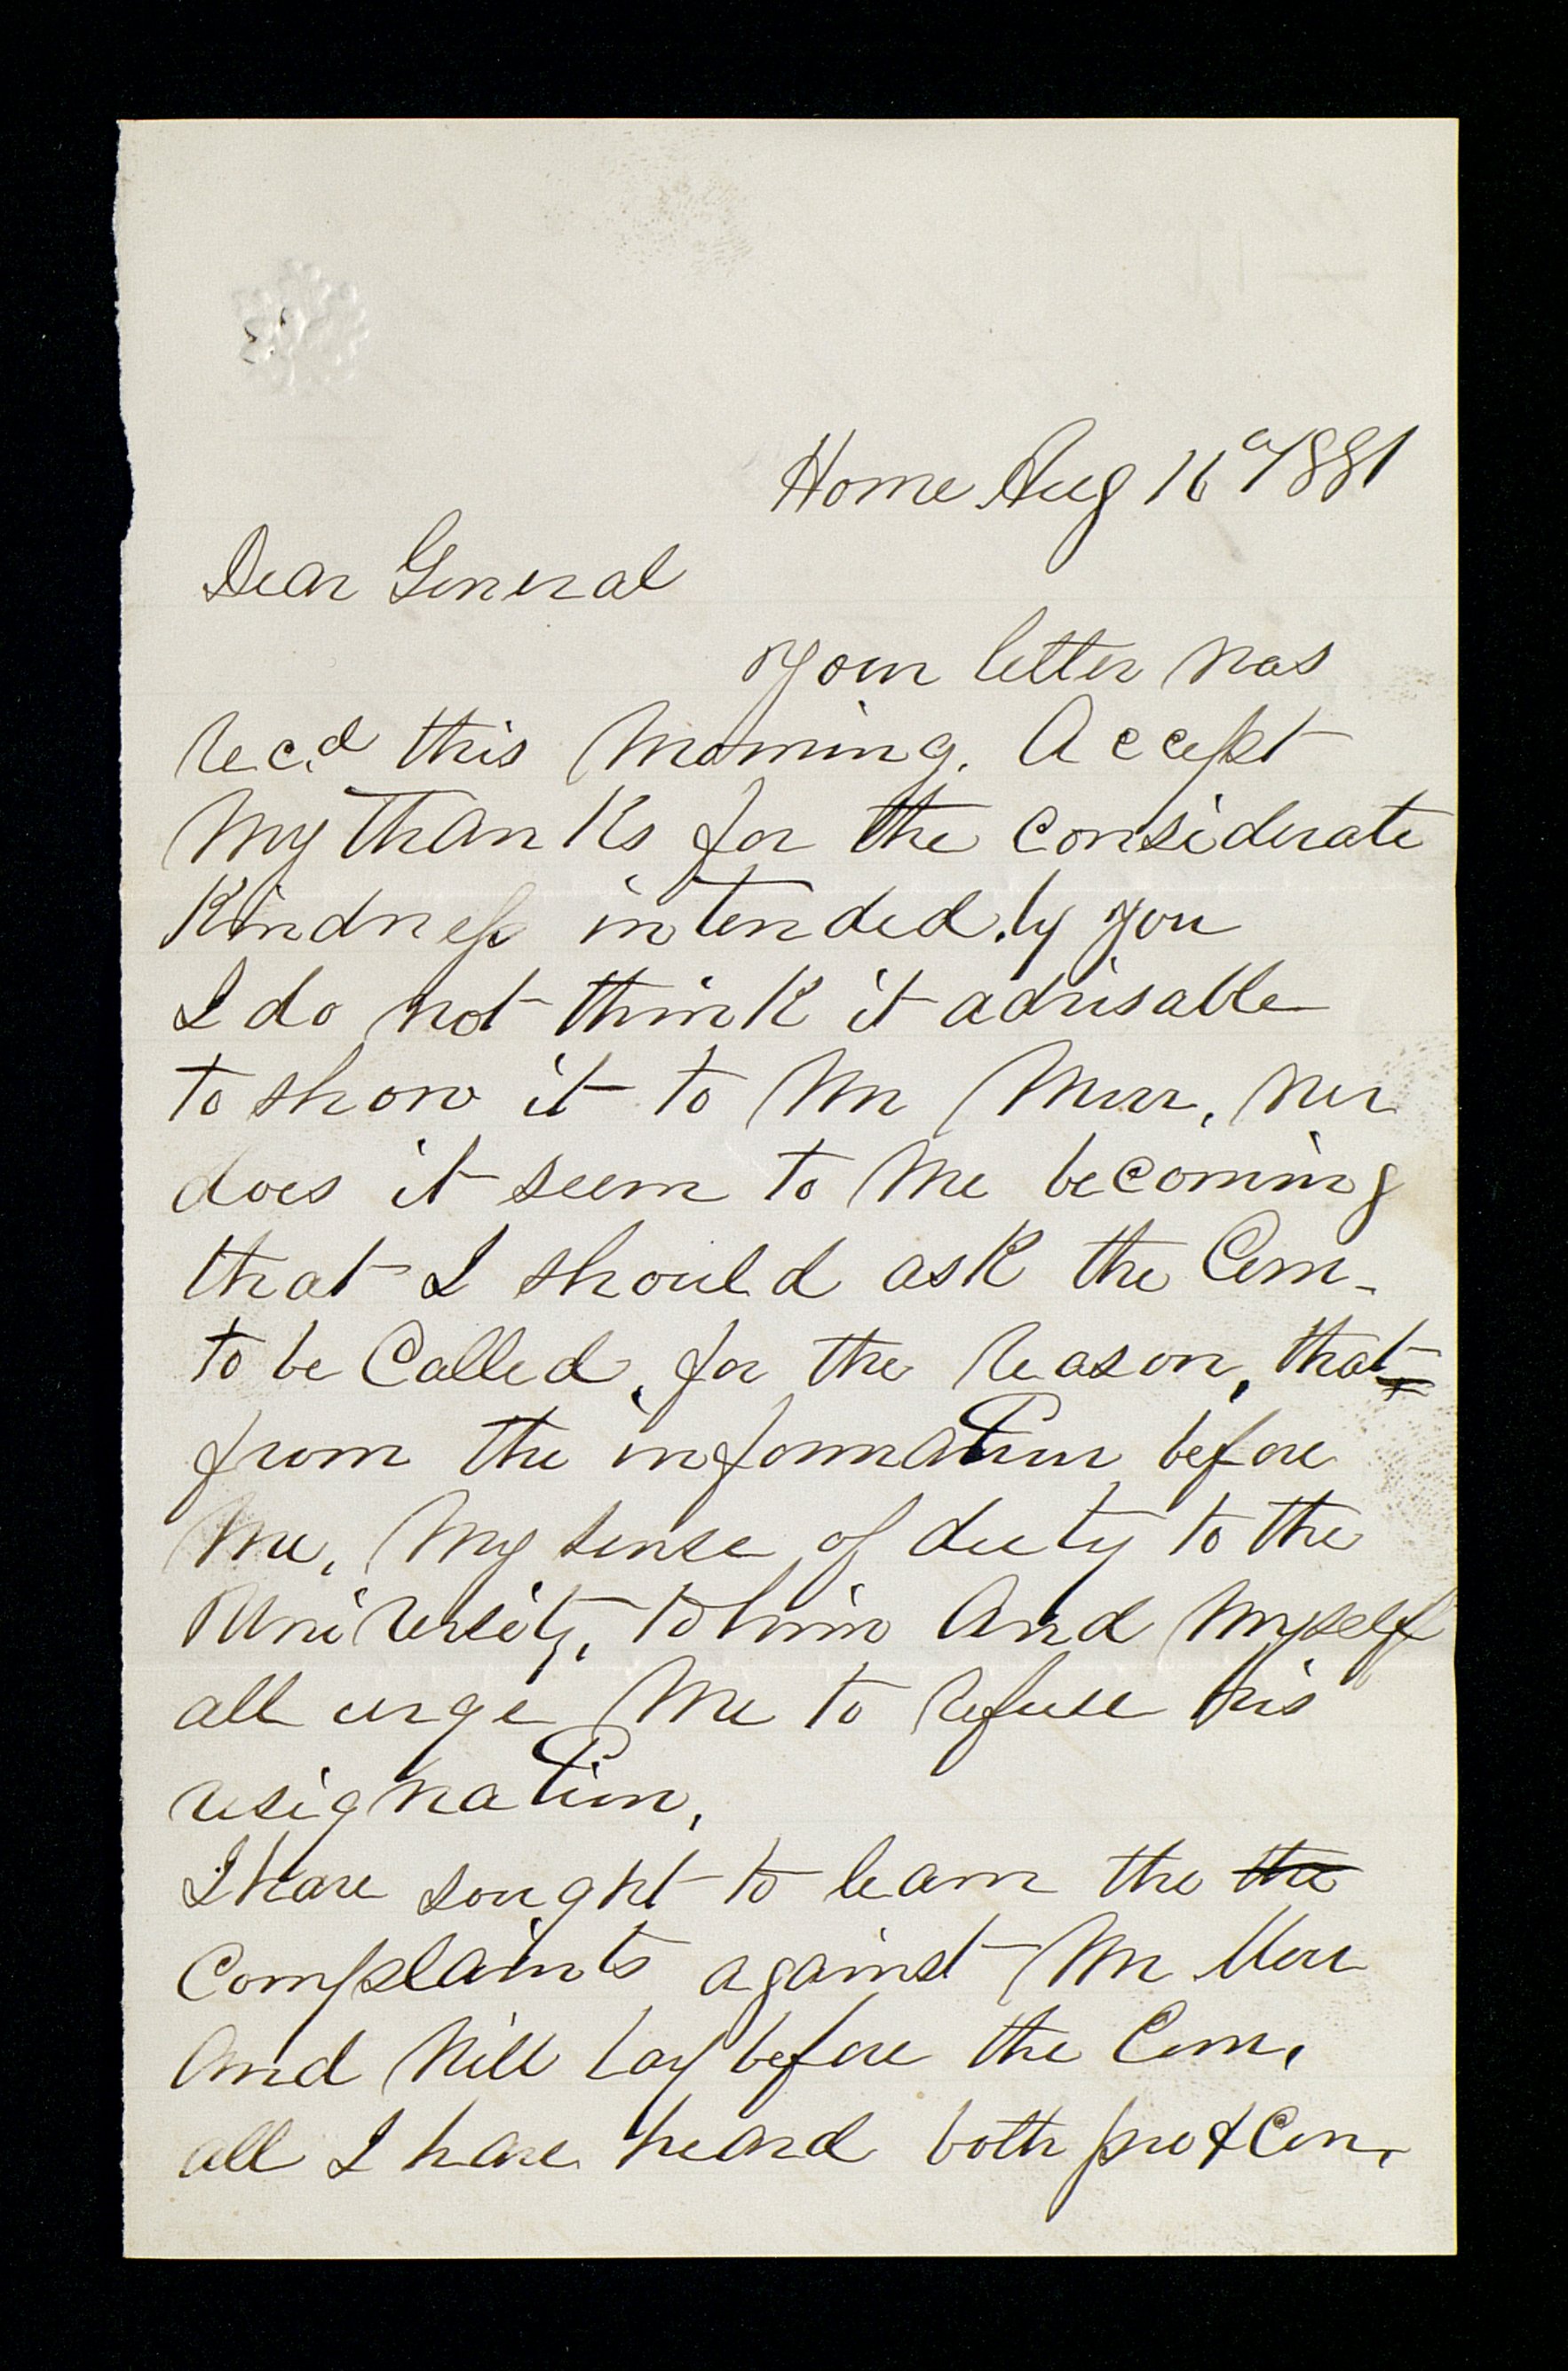 Home Aug 16th 1881
Dear General
Your letter was
Recd this Morning. Accept
My thanks for the considerate
Kindness intended by you
I do not think it advisable
to show it to Mr Murr, nor
does it seem to Me becoming
that I should ask the Com-
to be Called, for the Reason, that
from the information before
Me, My sense of duty to the
University, to him And Myself
all urge Me to Refuse his
resignation,
I have sought to learn the the
Complaints against Mr Murr
And Will lay before the Com,
all I have heard both pro & Con,